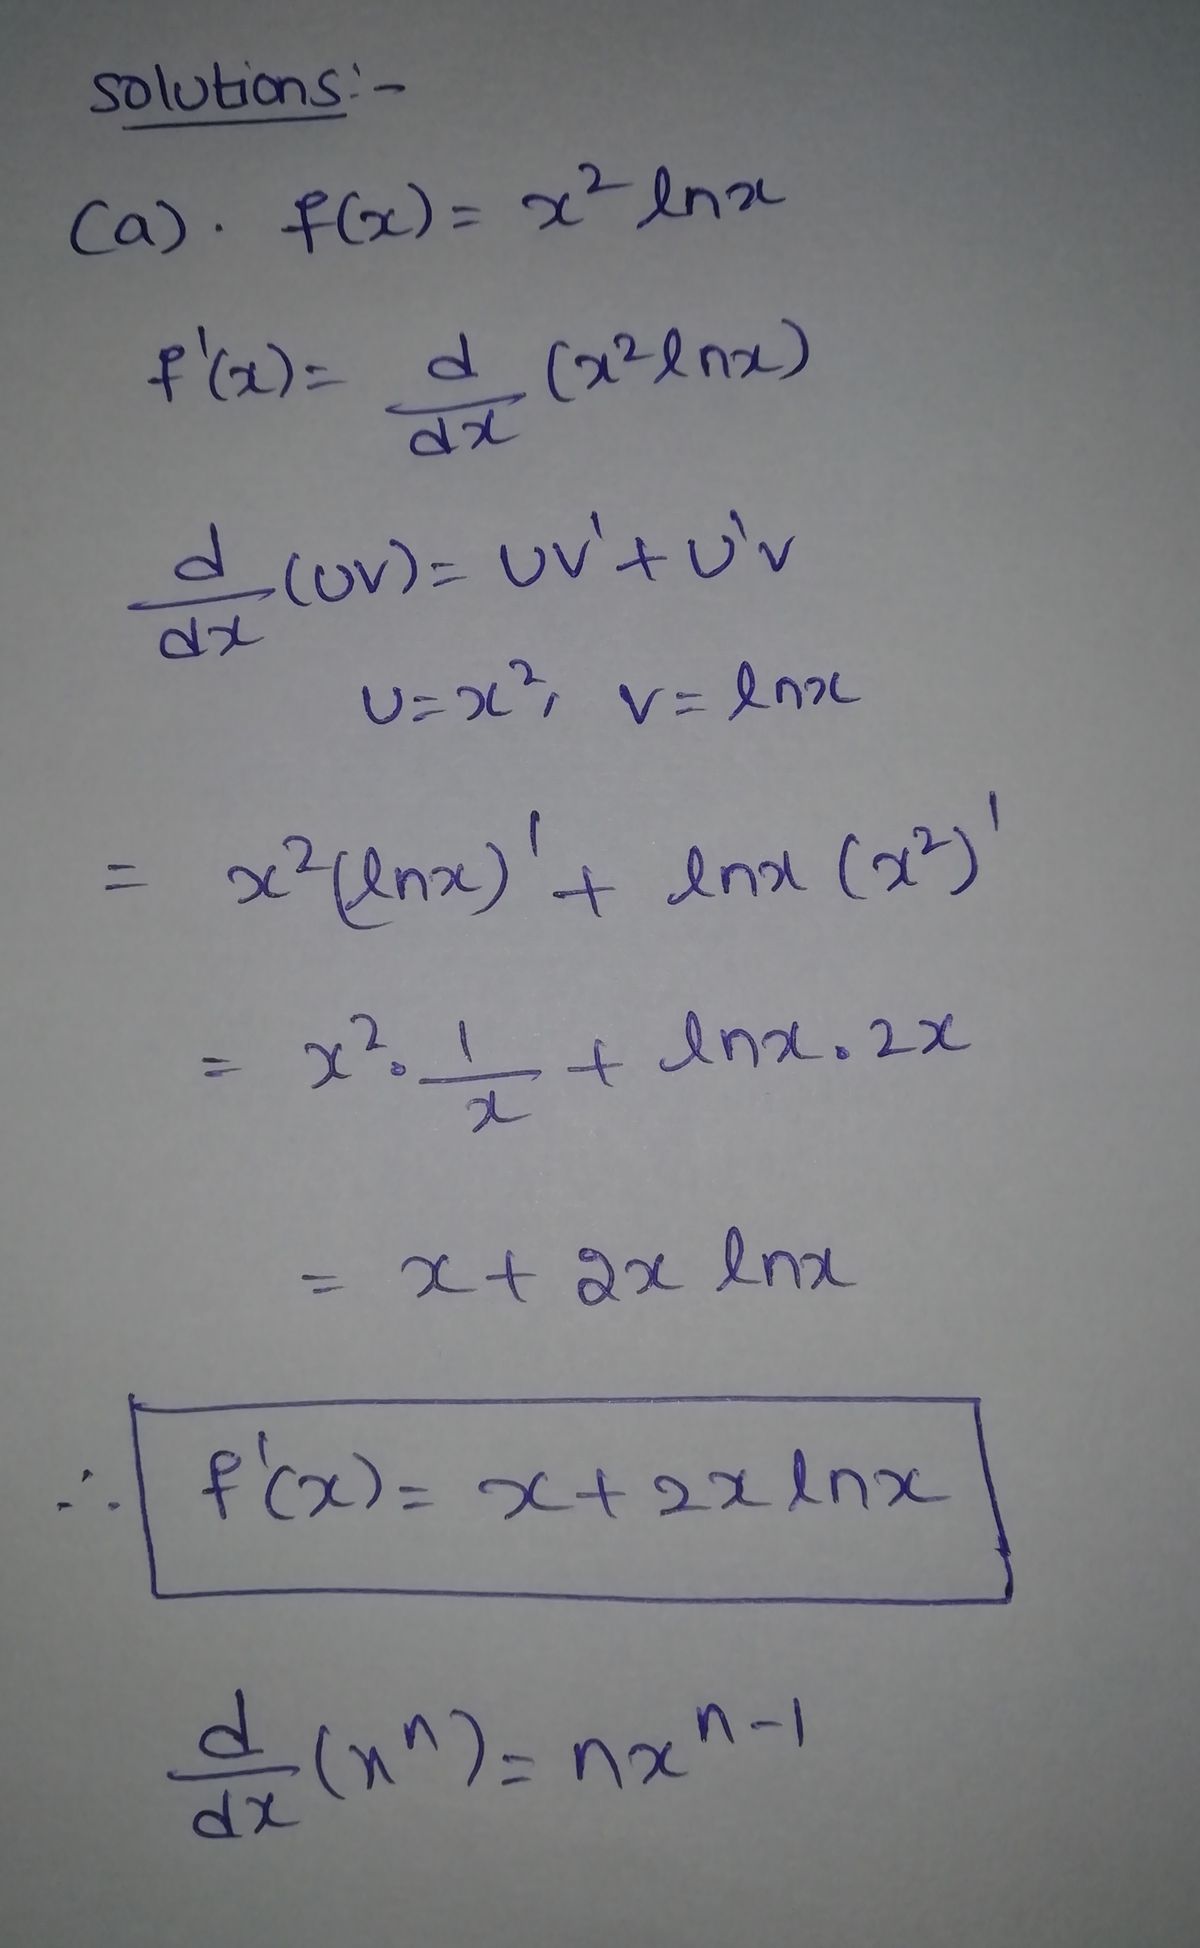 solutions:-
(a). f(x) = x² lnx
f'(x) = d/dx (x² lnx)
d/dx (UV) = UV' + U'V
U = x², V = lnx
= x² (lnx)' + lnx (x²)'
= x² · 1/x + lnx · 2x
= x + 2x lnx
∴ f'(x) = x + 2x lnx
d/dx (xⁿ) = nxⁿ⁻¹